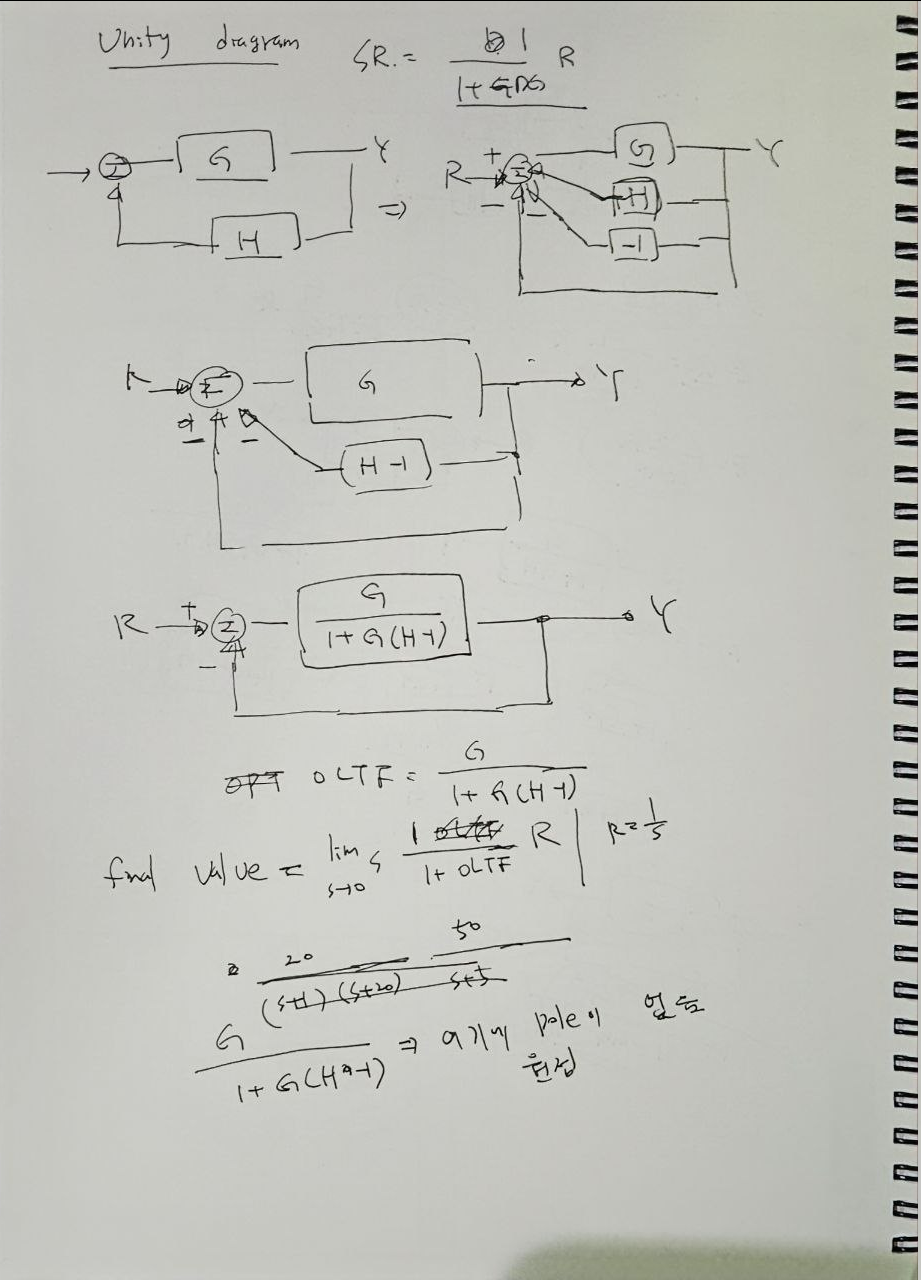 Unity diagram
SR. = 1 / 1 + GDG R
G Y
Σ
H
⇒
R + Σ G Y
H
− −
-1
R Σ G Y
− −
H -1
R + Σ G / 1 + G(H-1) Y
−
OLTF = G / 1 + G(H-1)
final value = lim s→0 s 1 / 1 + OLTF R | R = 1/s
= 20 / (s+1)(s+20) 50 / s+5
G / 1 + G(H-1) ⇒ 여기에 pole이 없음
원점